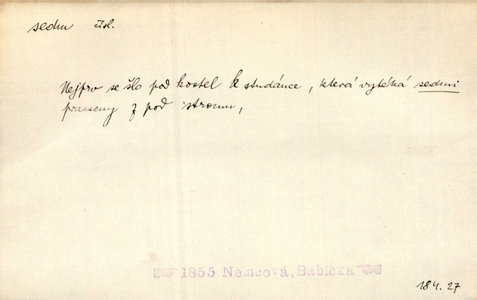 sedm čísl.
Nejprv se šlo pod kostel k studánce, která vytéká sedmi
prameny z pod stromu,
1855 Němcová, Babička
184.27